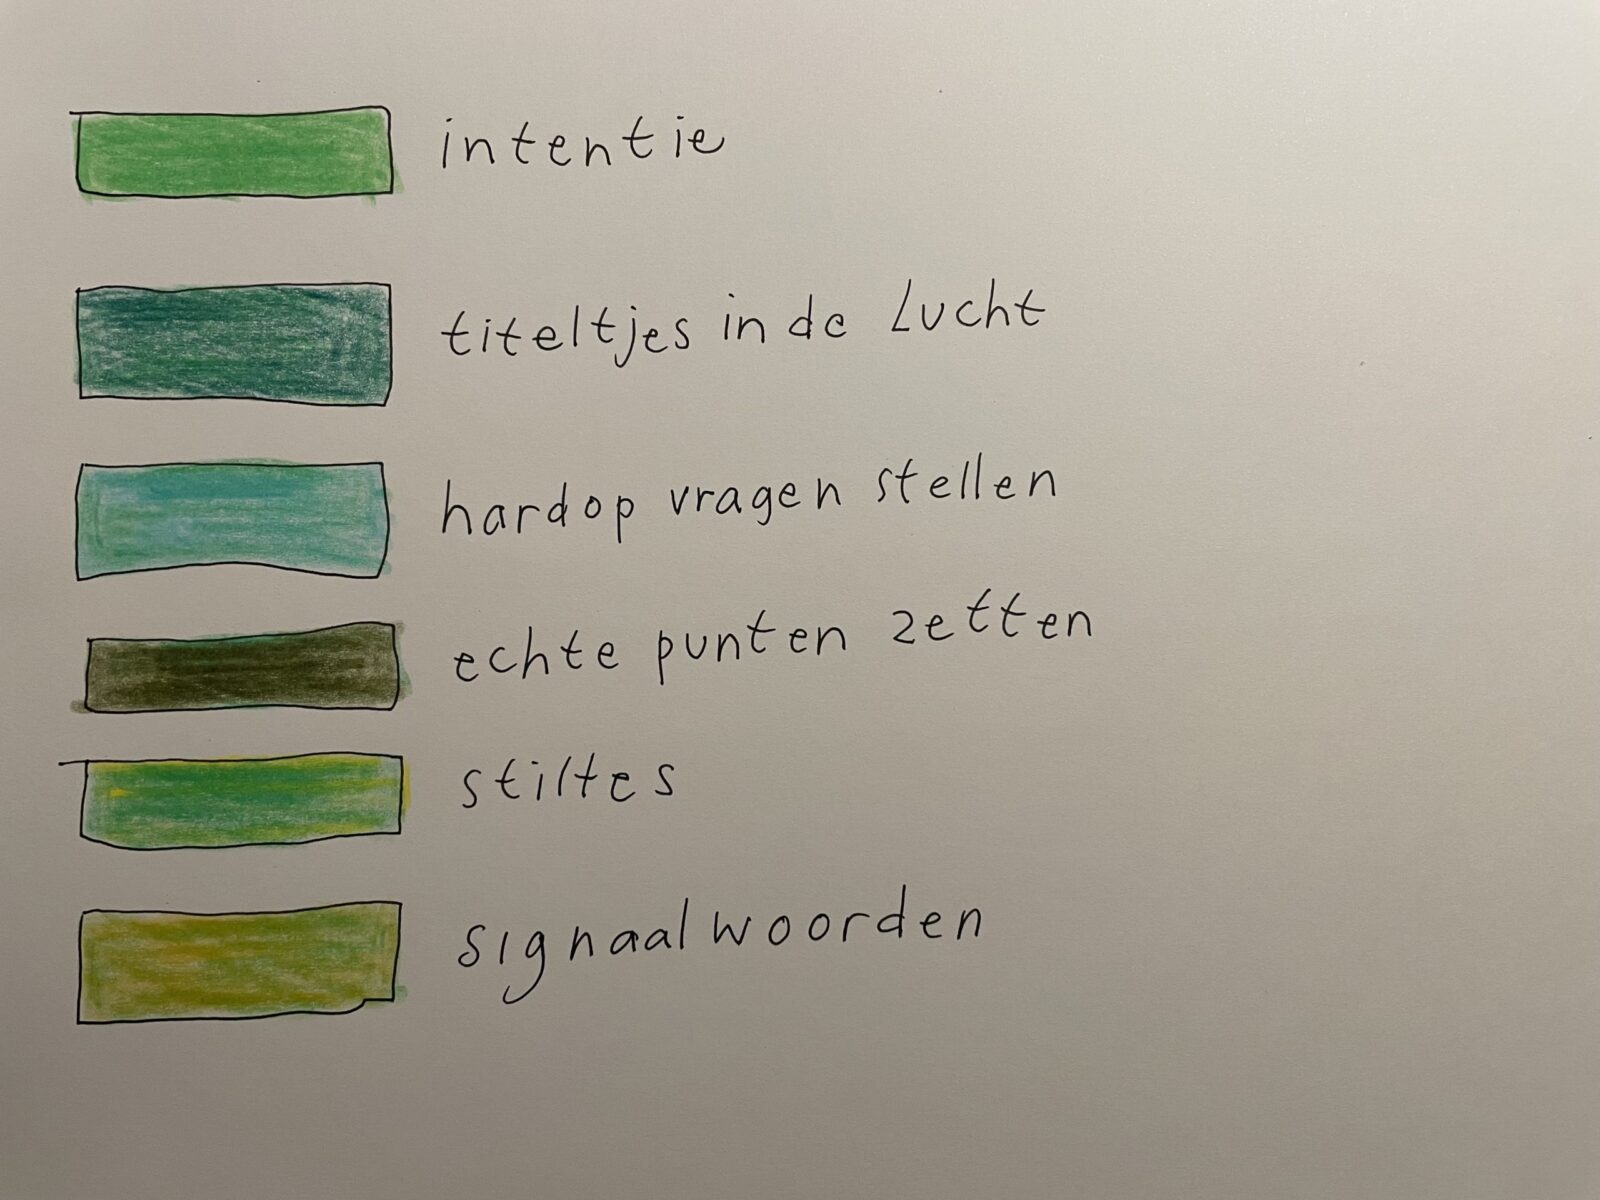 intentie
titeltjes in de Lucht
hardop vragen stellen
echte punten zetten
stiltes
signaalwoorden